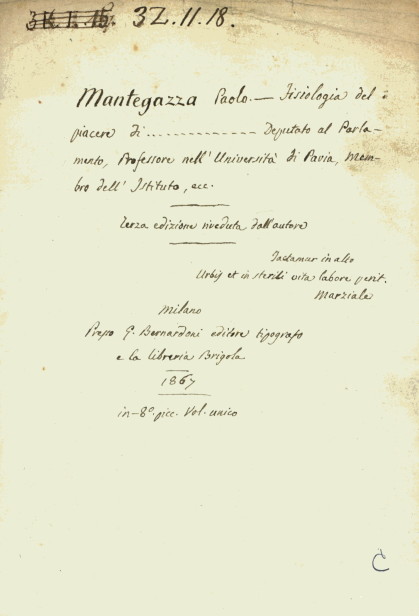 3Z.11.18.
Mantegazza Paolo. — Fisiologia del
piacere di .............. Deputato al Parla-
mento, Professore nell' Università di Pavia, Mem-
bro dell' Istituto, ecc.
Terza edizione riveduta dall'autore
Jactamur in alto
Urbis et in sterili vita labore perit.
Marziale
Milano
Presso G. Bernardoni editore tipografo
e la libreria Brigola
1867
in-8°. picc. Vol. unico
C